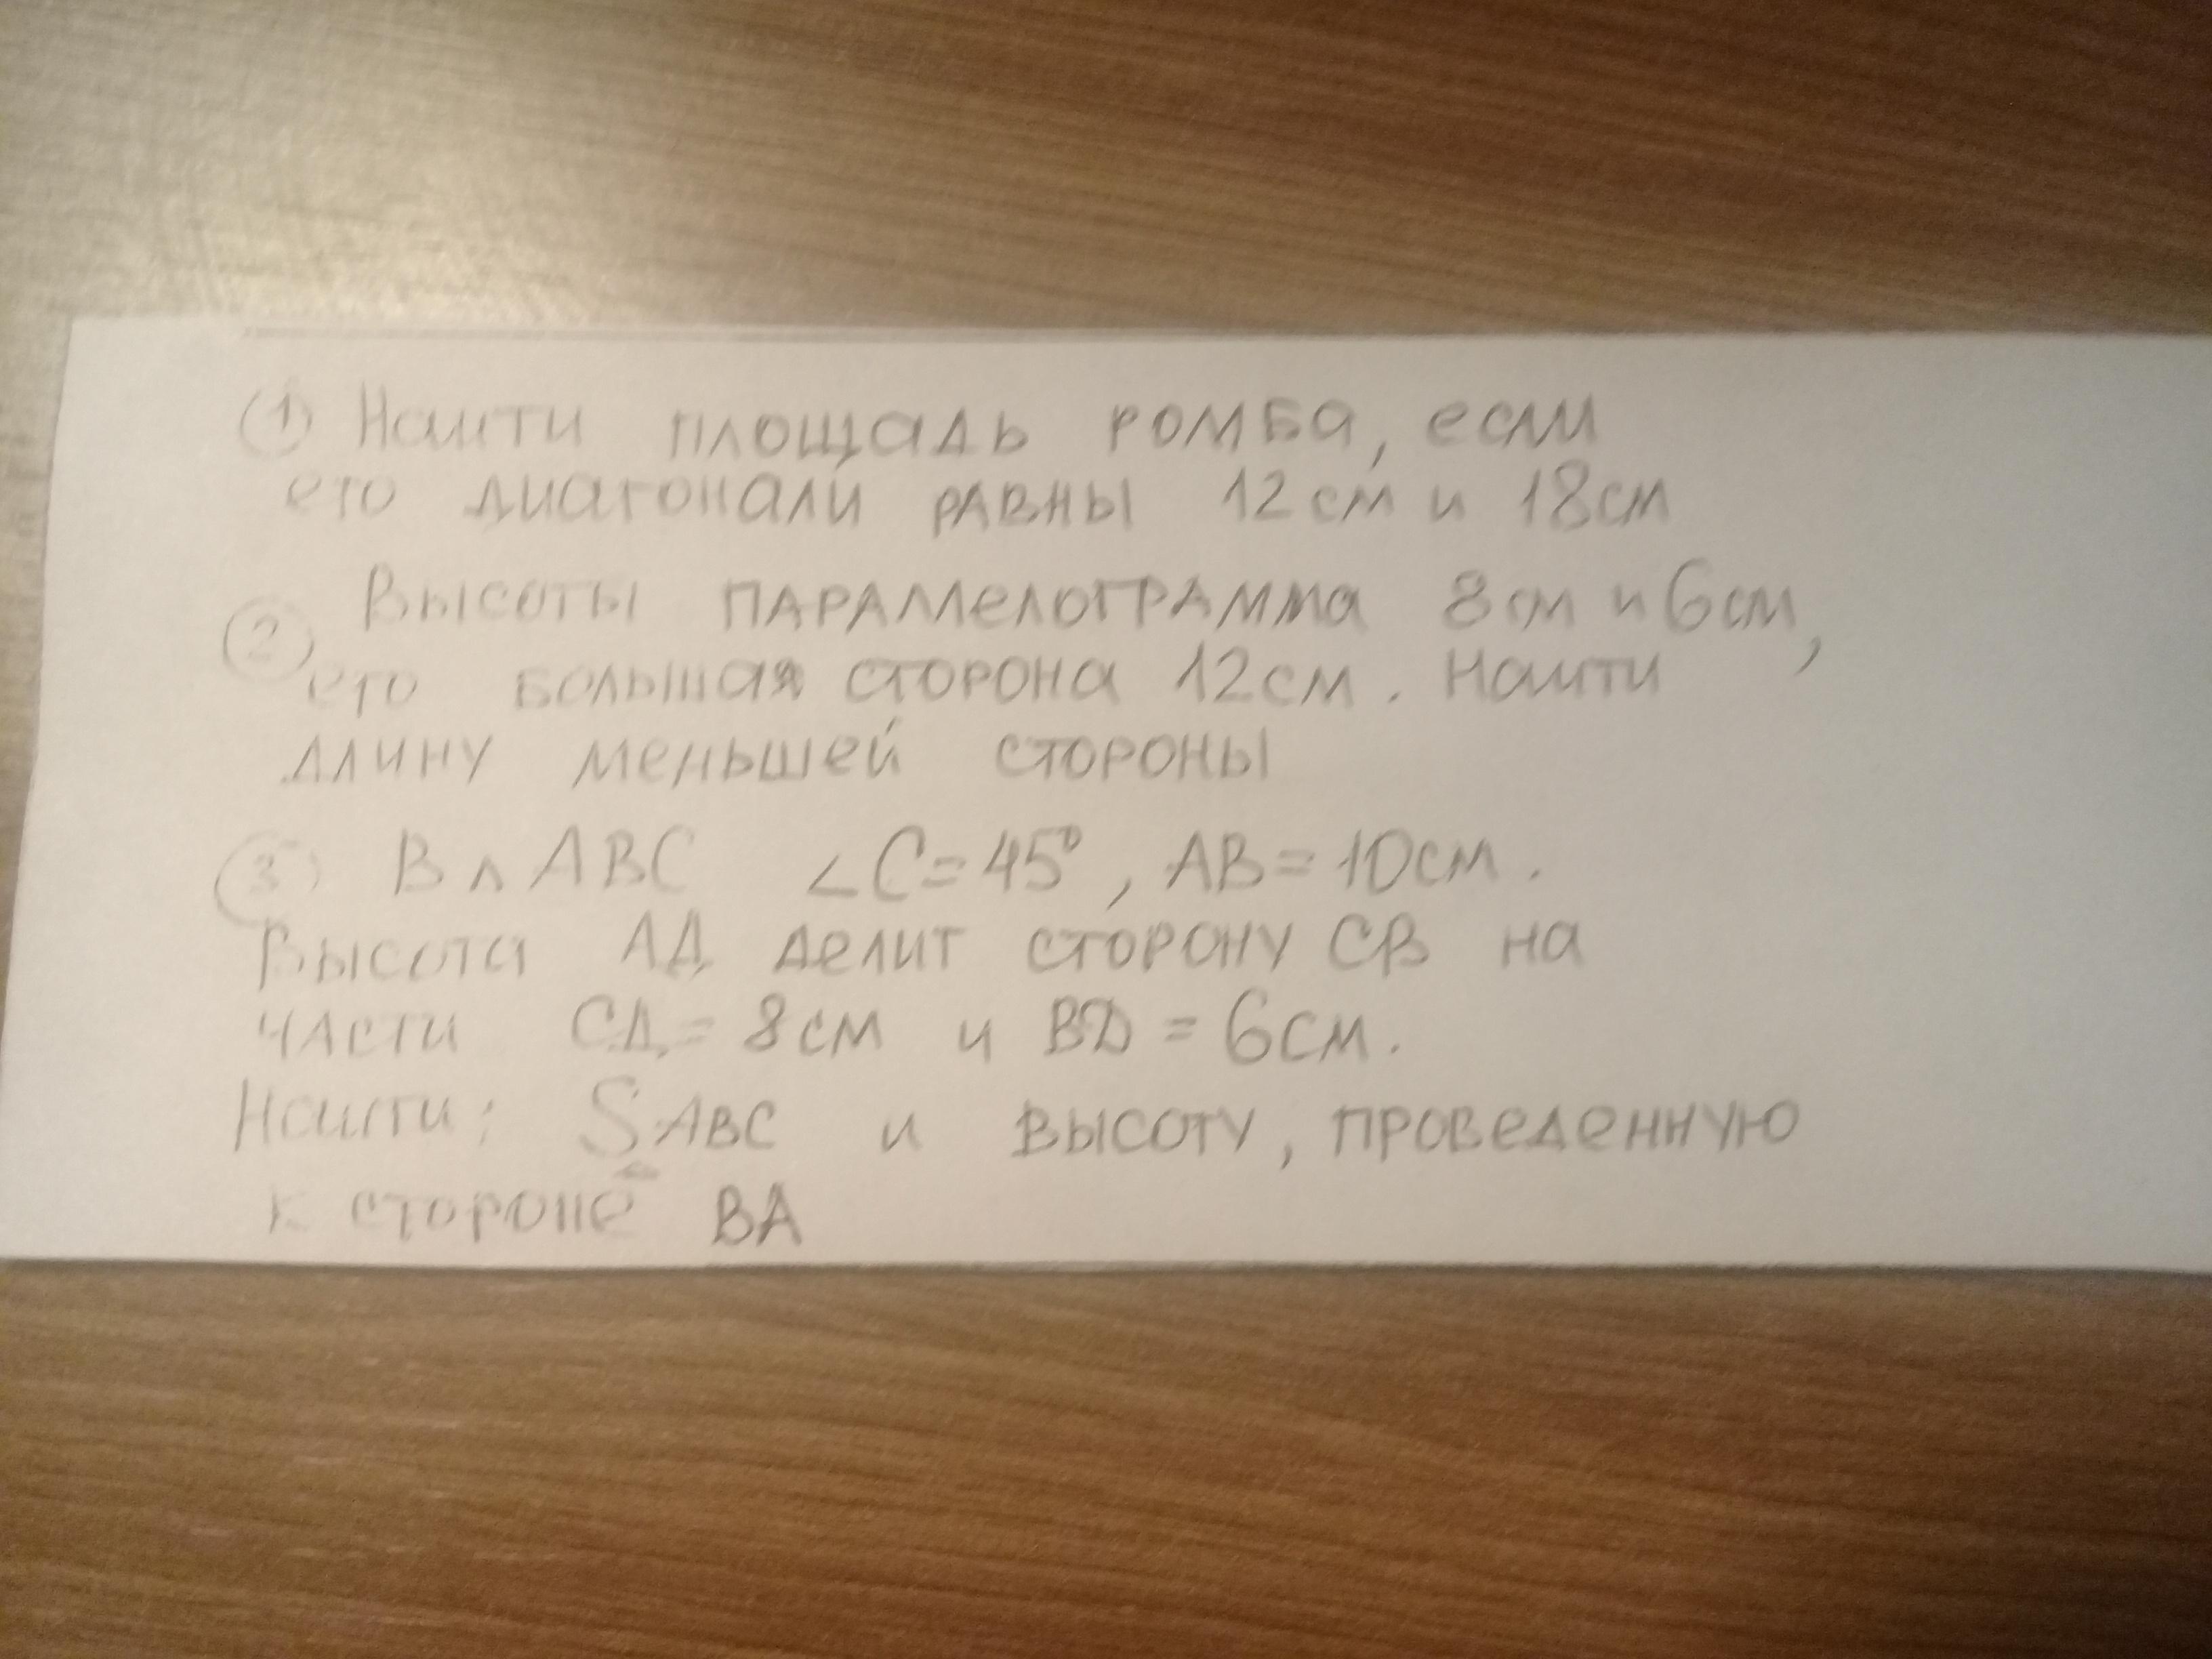 ① Найти площадь ромба, если
его диагонали равны 12см и 18см
② Высоты параллелограмма 8см и 6см,
его большая сторона 12см. Найти
длину меньшей стороны
③ В △ABC ∠C=45°, AB=10см.
Высота АД делит сторону СВ на
части СД=8см и BD=6см.
Найти: S ABC и высоту, проведенную
△
к стороне ВА